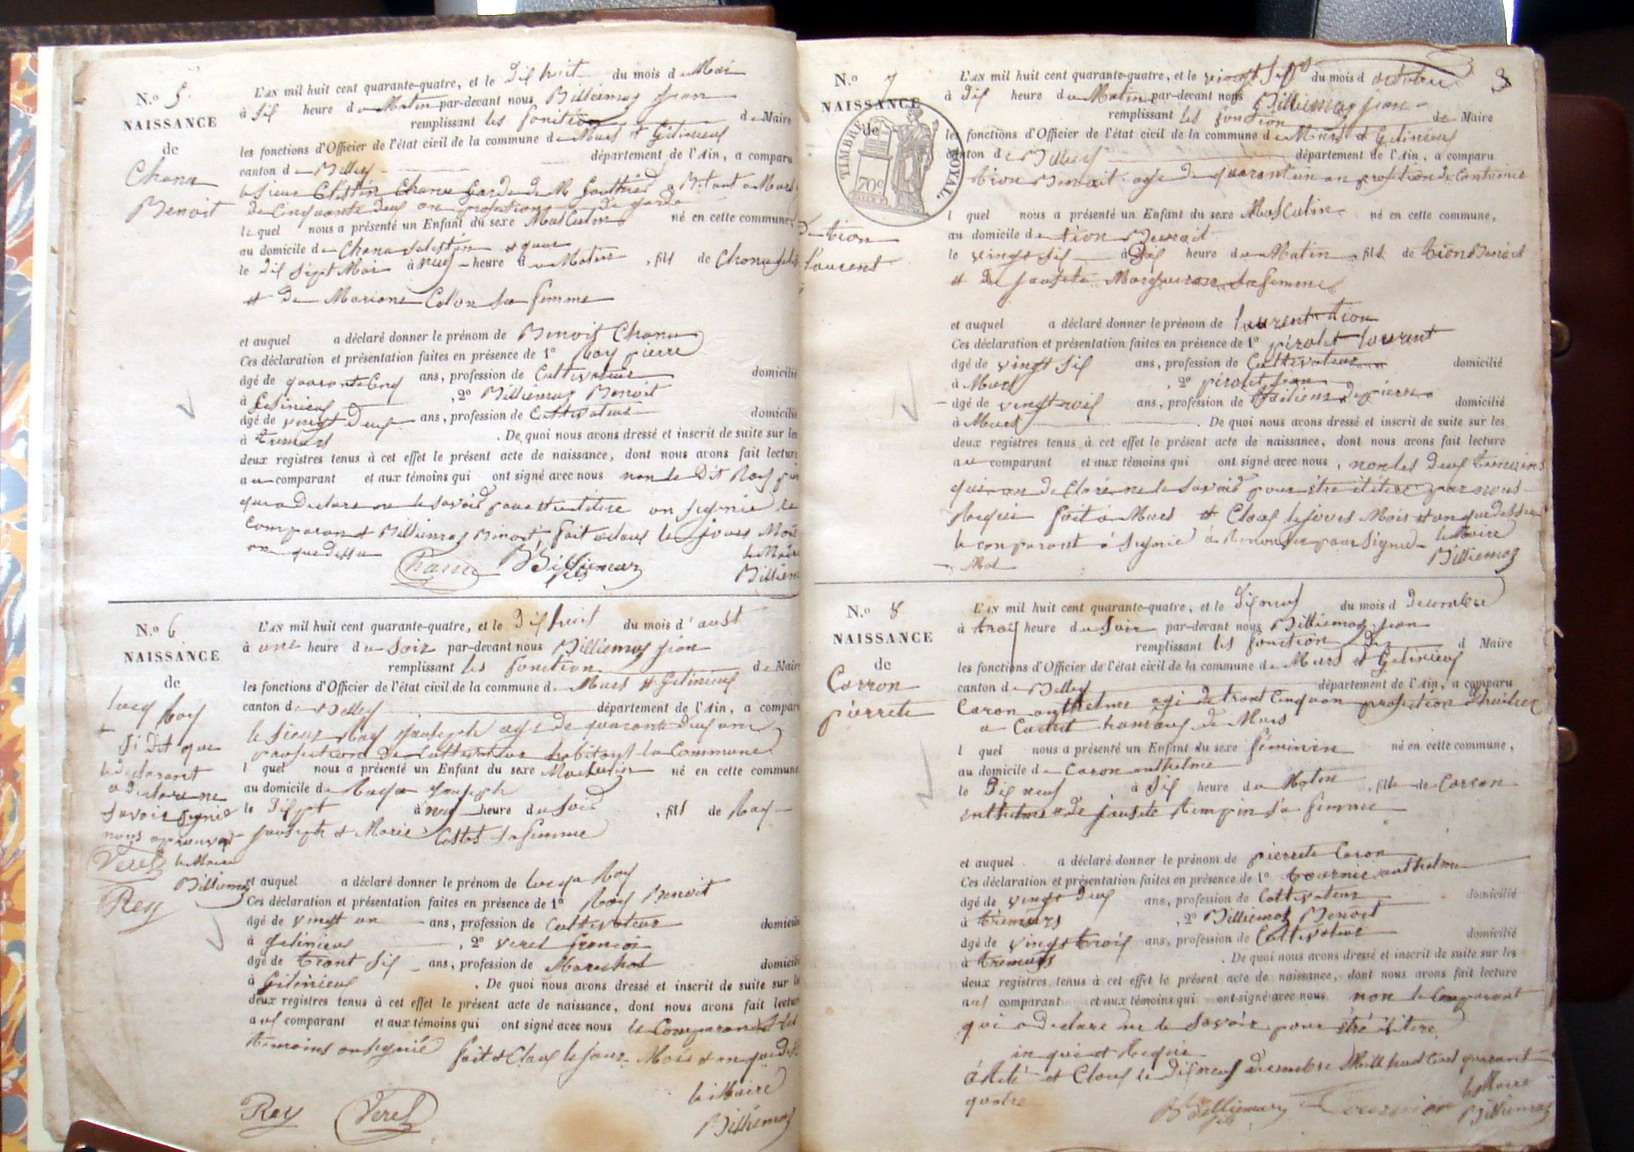 N.º 5.
NAISSANCE
de
Chana
Benoit
L'AN mil huit cent quarante-quatre, et le Dix huit du mois de Mai
à Six heure du Matin par-devant nous Billiemaz Jean
remplissant les fonction de Maire
les fonctions d'Officier de l'état civil de la commune de Murs et Gelinieux
canton de Belley département de l'Ain, a comparu
le Sieur Chana Garde de M. Gauthier
de Cinquante deux an profection de garde
le quel nous a présenté un Enfant du sexe Masculin né en cette commune,
au domicile de Chana
le Dix Sept Mai à neuf heure du Matin, fils de Chana
et de Mariane Colon Sa femme
et auquel a déclaré donner le prénom de Benoit Chana
Ces déclaration et présentation faites en présence de 1º Roy pierre
âgé de quarante Cinq ans, profession de Cultivateur domicilié
à Gelinieux, 2º Billiemaz Benoit
âgé de vingt Deux ans, profession de Cultivateur domicilié
à tremurs. De quoi nous avons dressé et inscrit de suite sur les
deux registres tenus à cet effet le présent acte de naissance, dont nous avons fait lecture
au comparant et aux témoins qui ont signé avec nous non le Dit Roy
qui a Declare ne le savoir pour etre on Signié le
Comparan et Billiemaz Benoit fait et clous les jours Mois
an que dessus
Chana Billiemaz le Maire
Billiemaz
N.º 6
NAISSANCE
de
Roy
Si Dit que
le Declarant
a Declare ne
savoir Signié
nous
Veret le Maire
Billiemaz
Rey
L'AN mil huit cent quarante-quatre, et le Dix huit du mois d'aust
à une heure du Soir par-devant nous Billiemaz Jean
remplissant les fonction de Maire
les fonctions d'Officier de l'état civil de la commune de Murs et Gelinieux
canton de Belley département de l'Ain, a comparu
le Sieur Roy Jauseph age de quarante Deux ans
profection de Cultivateur habitant la Commune
l quel nous a présenté un Enfant du sexe Masculin né en cette commune
au domicile de Jauseph
le Dix Sept à neuf heure du Soir, fils de Roy
Jauseph et Marie Costas Sa femme
et auquel a déclaré donner le prénom de Roy
Ces déclaration et présentation faites en présence de 1º Roy Benoit
âgé de vingt un ans, profession de Cultivateur domicilié
à Gelinieux, 2º Veret francoi
âgé de trant Six ans, profession de Marechal domicilié
à Gelinieux. De quoi nous avons dressé et inscrit de suite sur les
deux registres tenus à cet effet le présent acte de naissance, dont nous avons fait lecture
aux comparant et aux témoins qui ont signé avec nous le Comparan et les
temoins on signié fait et Clous le Jour Mois et an que dessus
le Maire
Rey Veret Billiemaz
3
N.º 7
NAISSANCE
de
TIMBRE ROYAL.
70 c
De tion
laurent
L'AN mil huit cent quarante-quatre, et le vingt Six du mois d octobre
à Dix heure du Matin par-devant nous Billiemaz Jean
remplissant les fonction de Maire
les fonctions d'Officier de l'état civil de la commune de Murs et Gelinieux
canton de Belley département de l'Ain, a comparu
tion Benoit age de quarant un an profection de
l quel nous a présenté un Enfant du sexe Masculin né en cette commune,
au domicile de tion Benoit
le vingt Six à Dix heure du Matin, fils de tion Benoit
et de Jausete Sa femme
et auquel a déclaré donner le prénom de laurent tion
Ces déclaration et présentation faites en présence de 1º pirolet laurent
âgé de vingt Six ans, profession de Cultivateur domicilié
à Murs, 2º pirolet Jean
âgé de ans, profession de de pierre domicilié
à Murs. De quoi nous avons dressé et inscrit de suite sur les
deux registres tenus à cet effet le présent acte de naissance, dont nous avons fait lecture
au comparant et aux témoins qui ont signé avec nous, non les Deux temoins
qui on Declaré ne le savoir pour etre par nous
Requis fait a Murs et Clous les jours Mois et an que dessus
le comparant a Signié le Maire
Mot Billiemaz
N.º 8
NAISSANCE
de
Carron
pierrete
L'AN mil huit cent quarante-quatre, et le Dix neuf du mois d Decembre
à trois heure du Soir par-devant nous Billiemaz Jean
remplissant les fonction De d Maire
les fonctions d'Officier de l'état civil de la commune de Murs et Gelinieux
canton de Belley département de l'Ain, a comparu
Caron anthelme age de trant Cinq an profection
a hamaux de Murs
l quel nous a présenté un Enfant du sexe féminin né en cette commune,
au domicile de Caron anthelme
le Dix neuf, à Six heure du Matin, fils de Carron
anthelme et de Jausete tempin Sa femme
et auquel a déclaré donner le prénom de pierrete Caron
Ces déclaration et présentation faites en présence de 1º tournie anthelme
âgé de vingt Deux ans, profession de Coltivateur domicilié
à tremurs, 2º Billiemaz Benoit
âgé de vingt trois ans, profession de Coltivateur domicilié
à tremurs. De quoi nous avons dressé et inscrit de suite sur les
deux registres tenus à cet effet le présent acte de naissance, dont nous avons fait lecture
aux comparant et aux témoins qui ont signé avec nous non le Comparant
qui a Declare ne le Savoir pour etre
Requis
et Clous le Dix neuf decembre Mille huit Cent quarant
quatre le Maire
Billiemaz Billiemaz